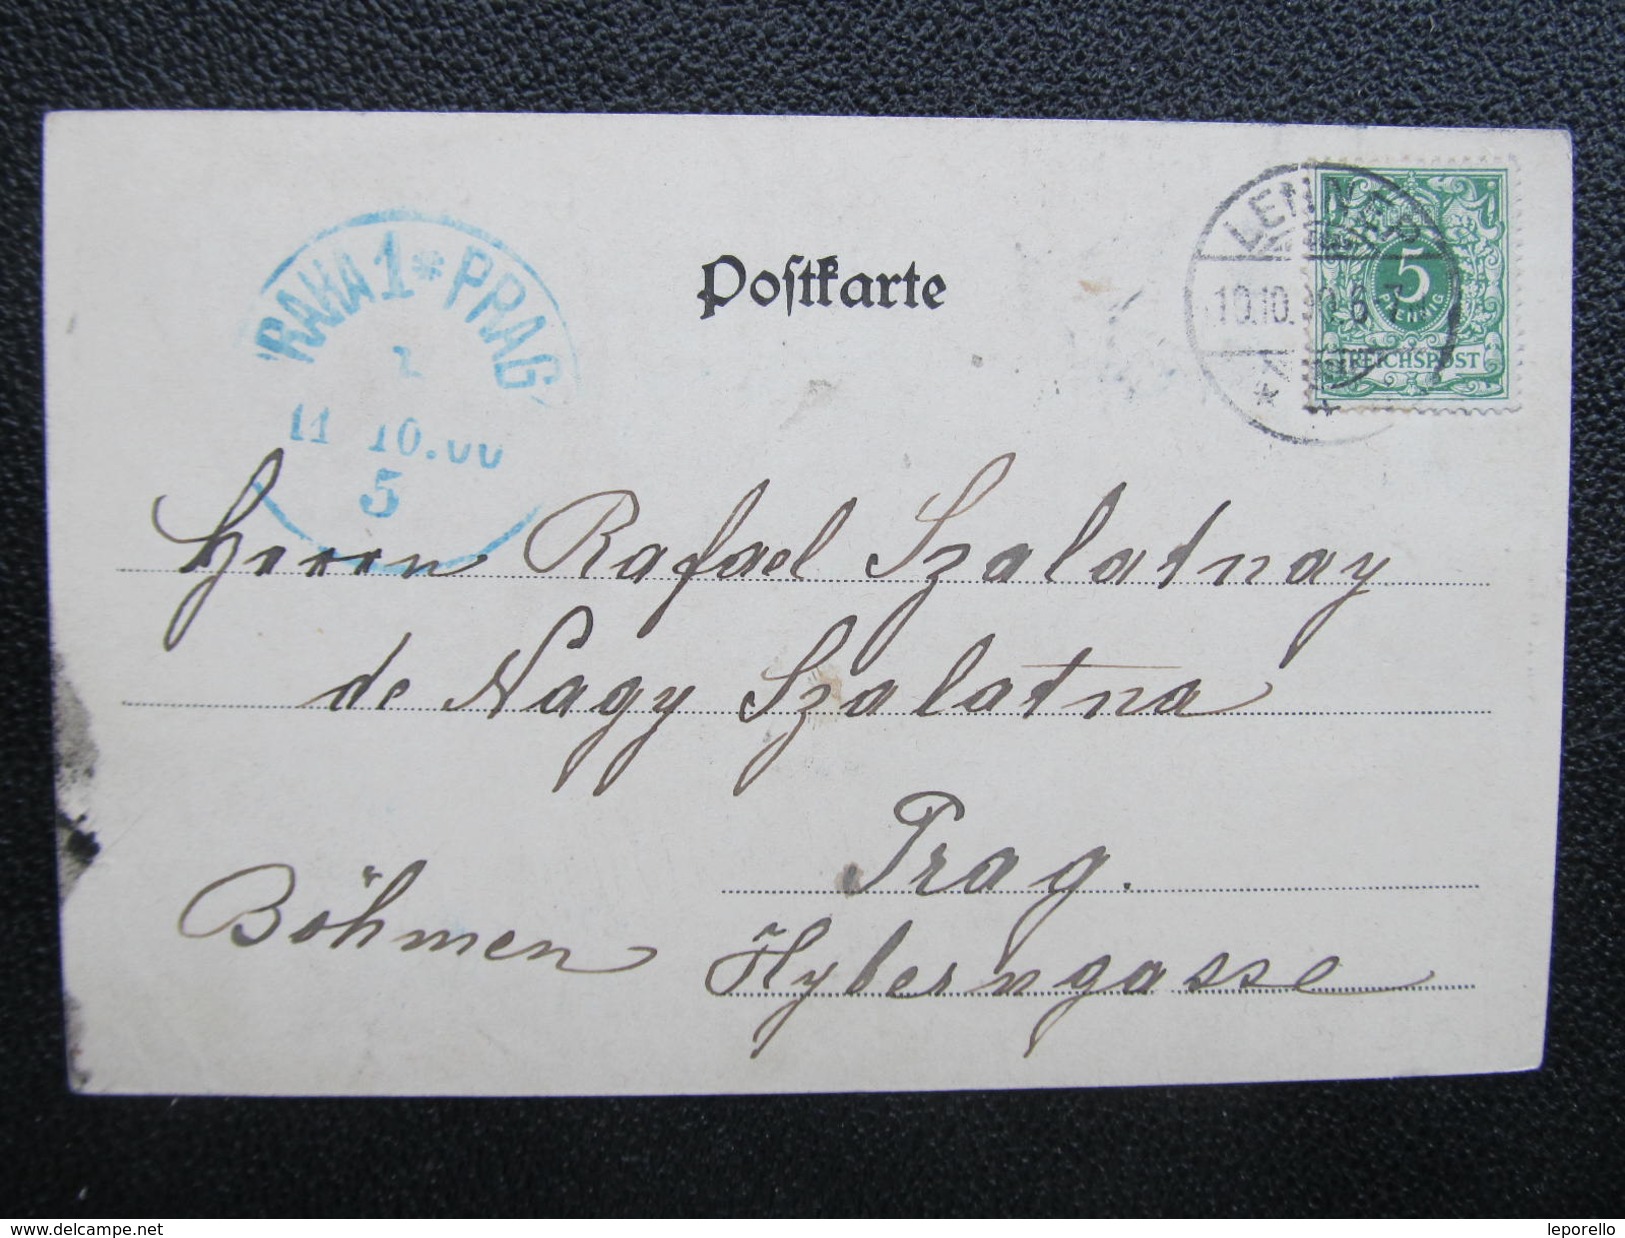 Postkarte
LENNEP
10.10.
5
PFENNIG
REICHSPOST
PRAHA 1 * PRAG
11 10.00
5
Herrn Rafael Szalatnay
de Nagy Szalatna
Prag.
Böhmen
Hybernngasse
www.delcampe.net
leporello